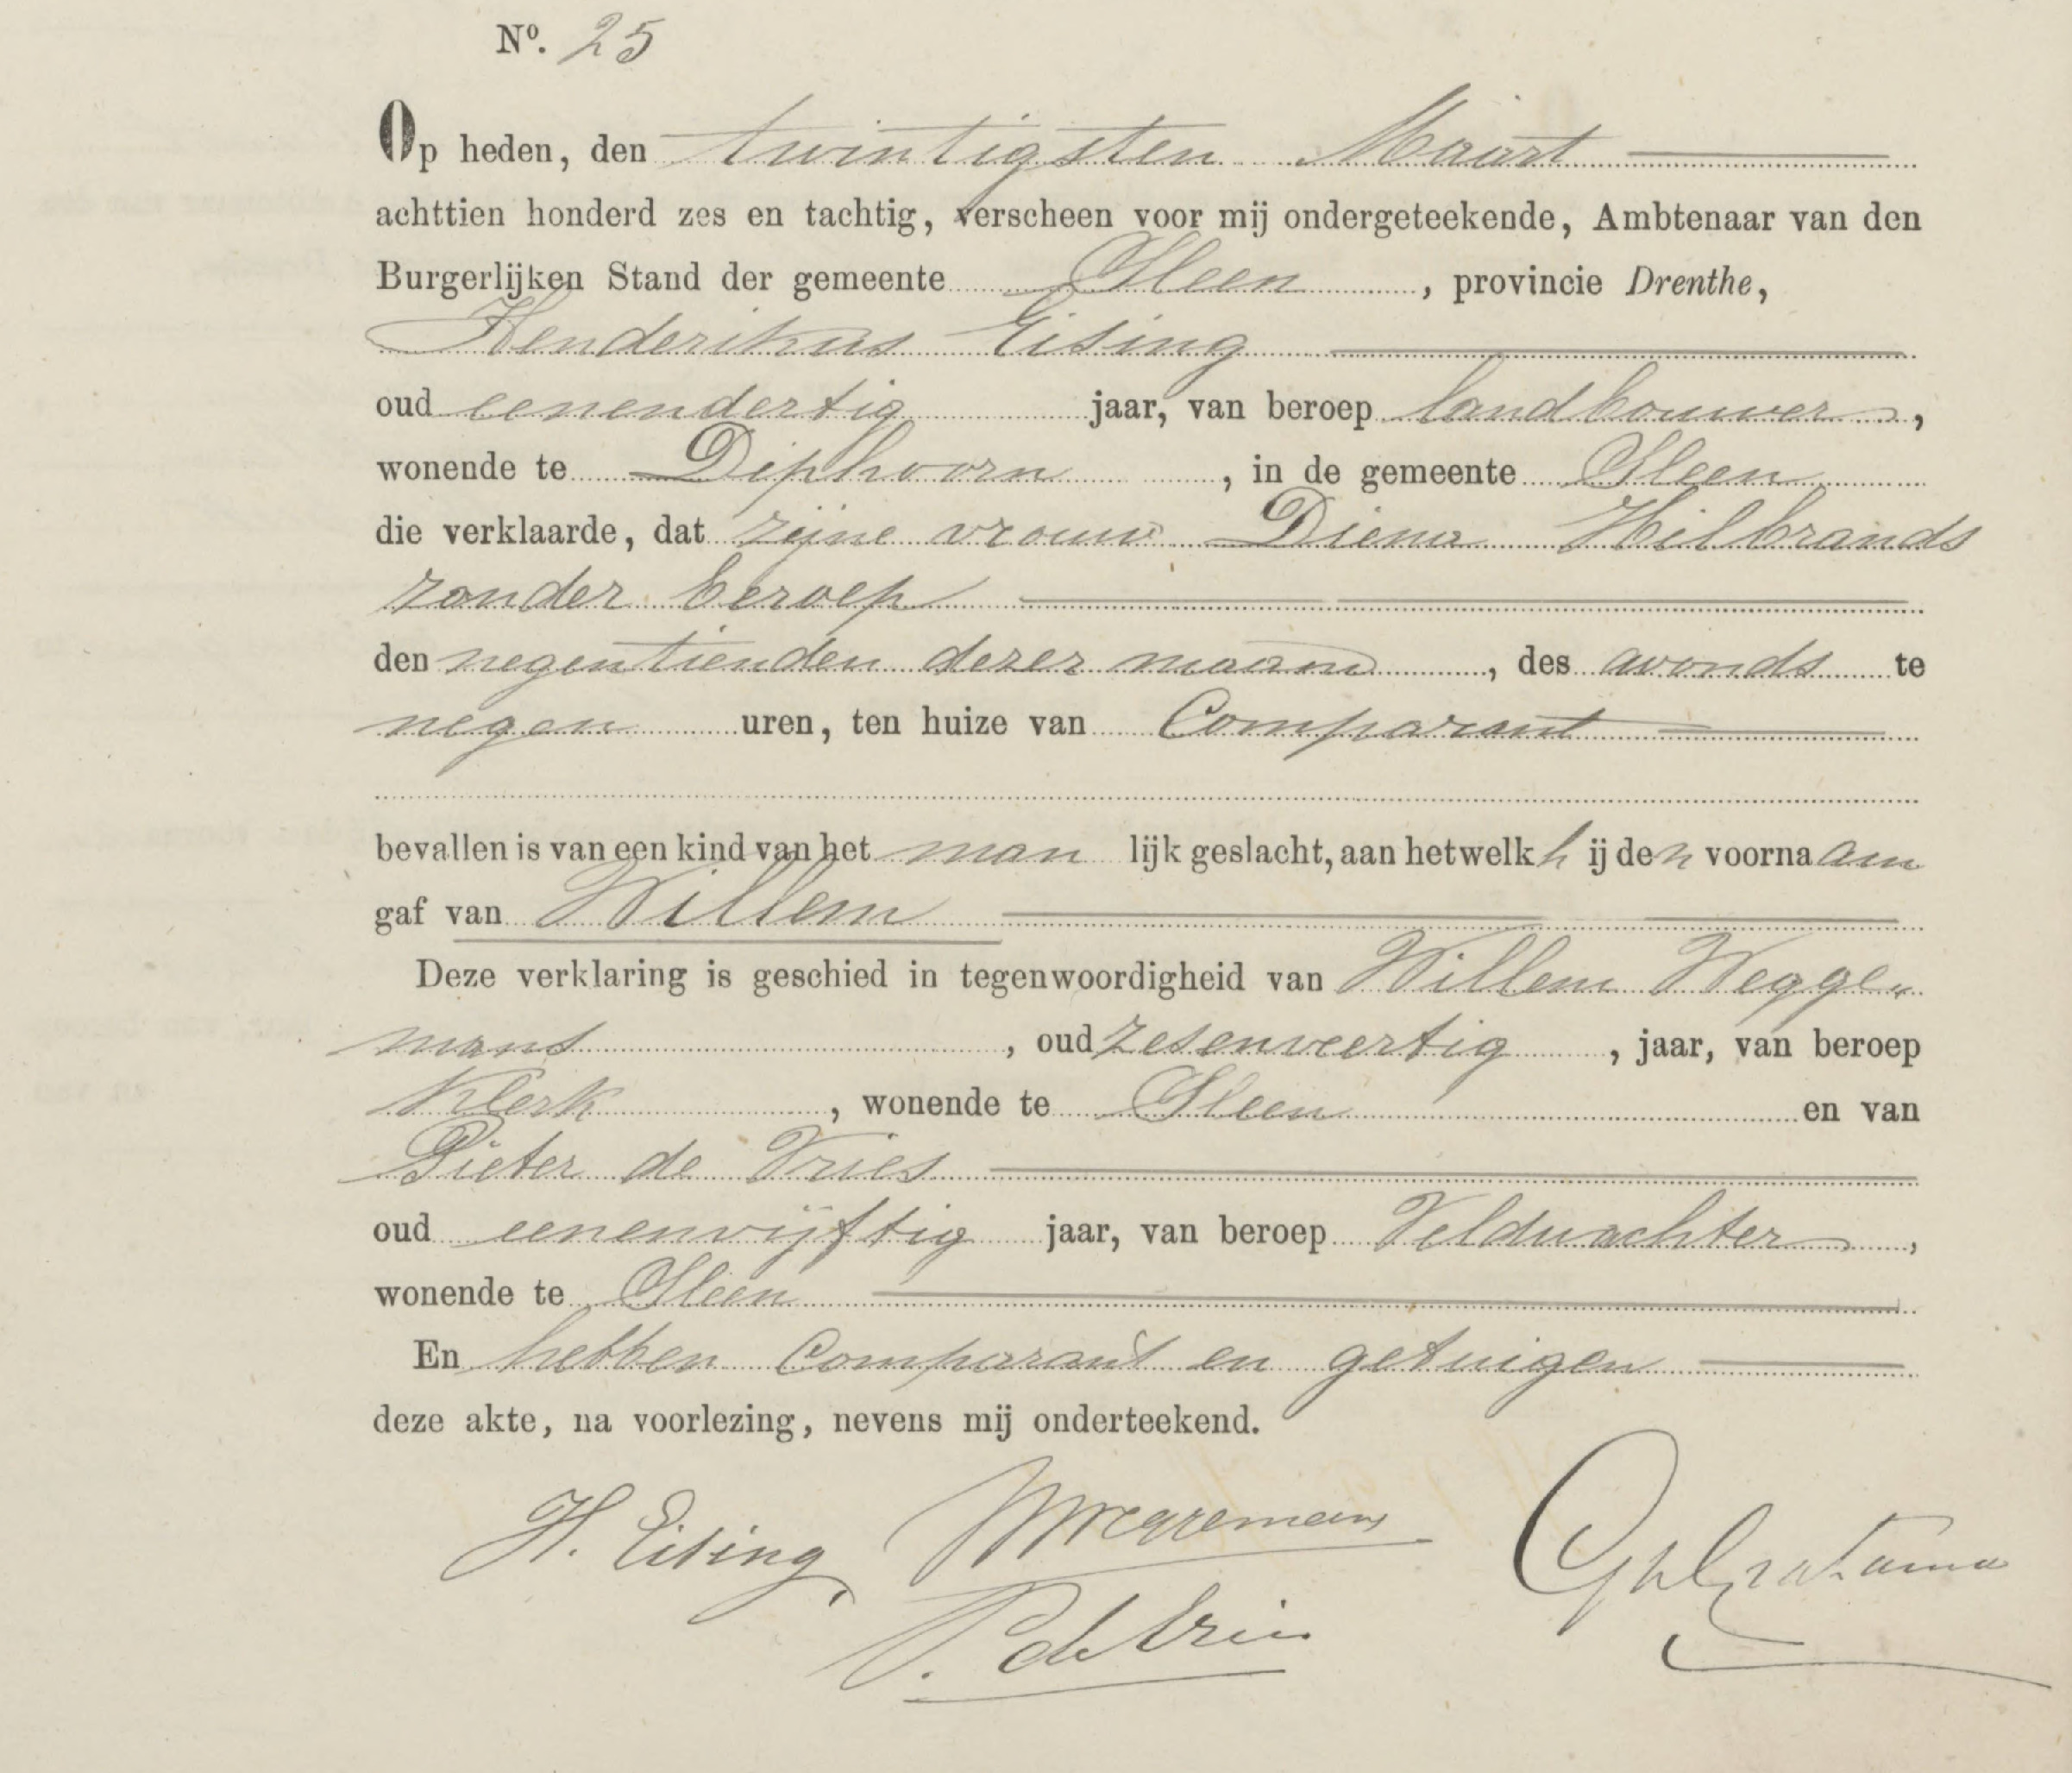 Nº. 25
Op heden, den twintigsten Maart
achttien honderd zes en tachtig, verscheen voor mij ondergeteekende, Ambtenaar van den
Burgerlijken Stand der gemeente Sleen, provincie Drenthe,
Henderikus Eising
oud eenendertig jaar, van beroep landbouwer,
wonende te Diphoorn, in de gemeente Sleen
die verklaarde, dat zijne vrouw Diena Hilbrands
zonder beroep
den negentienden dezer maand, des avonds te
negen uren, ten huize van Comparant
bevallen is van een kind van het man lijk geslacht, aan hetwelk hij den voornaam
gaf van Willem
Deze verklaring is geschied in tegenwoordigheid van Willem Wegge„
mans, oud zesenveertig, jaar, van beroep
Klerk, wonende te Sleen en van
Pieter de Vries
oud eenenvijftig jaar, van beroep Veldwachter,
wonende te Sleen
En hebben Comparant en getuigen
deze akte, na voorlezing, nevens mij onderteekend.
H. Eising WWeggemans
P. de Vries